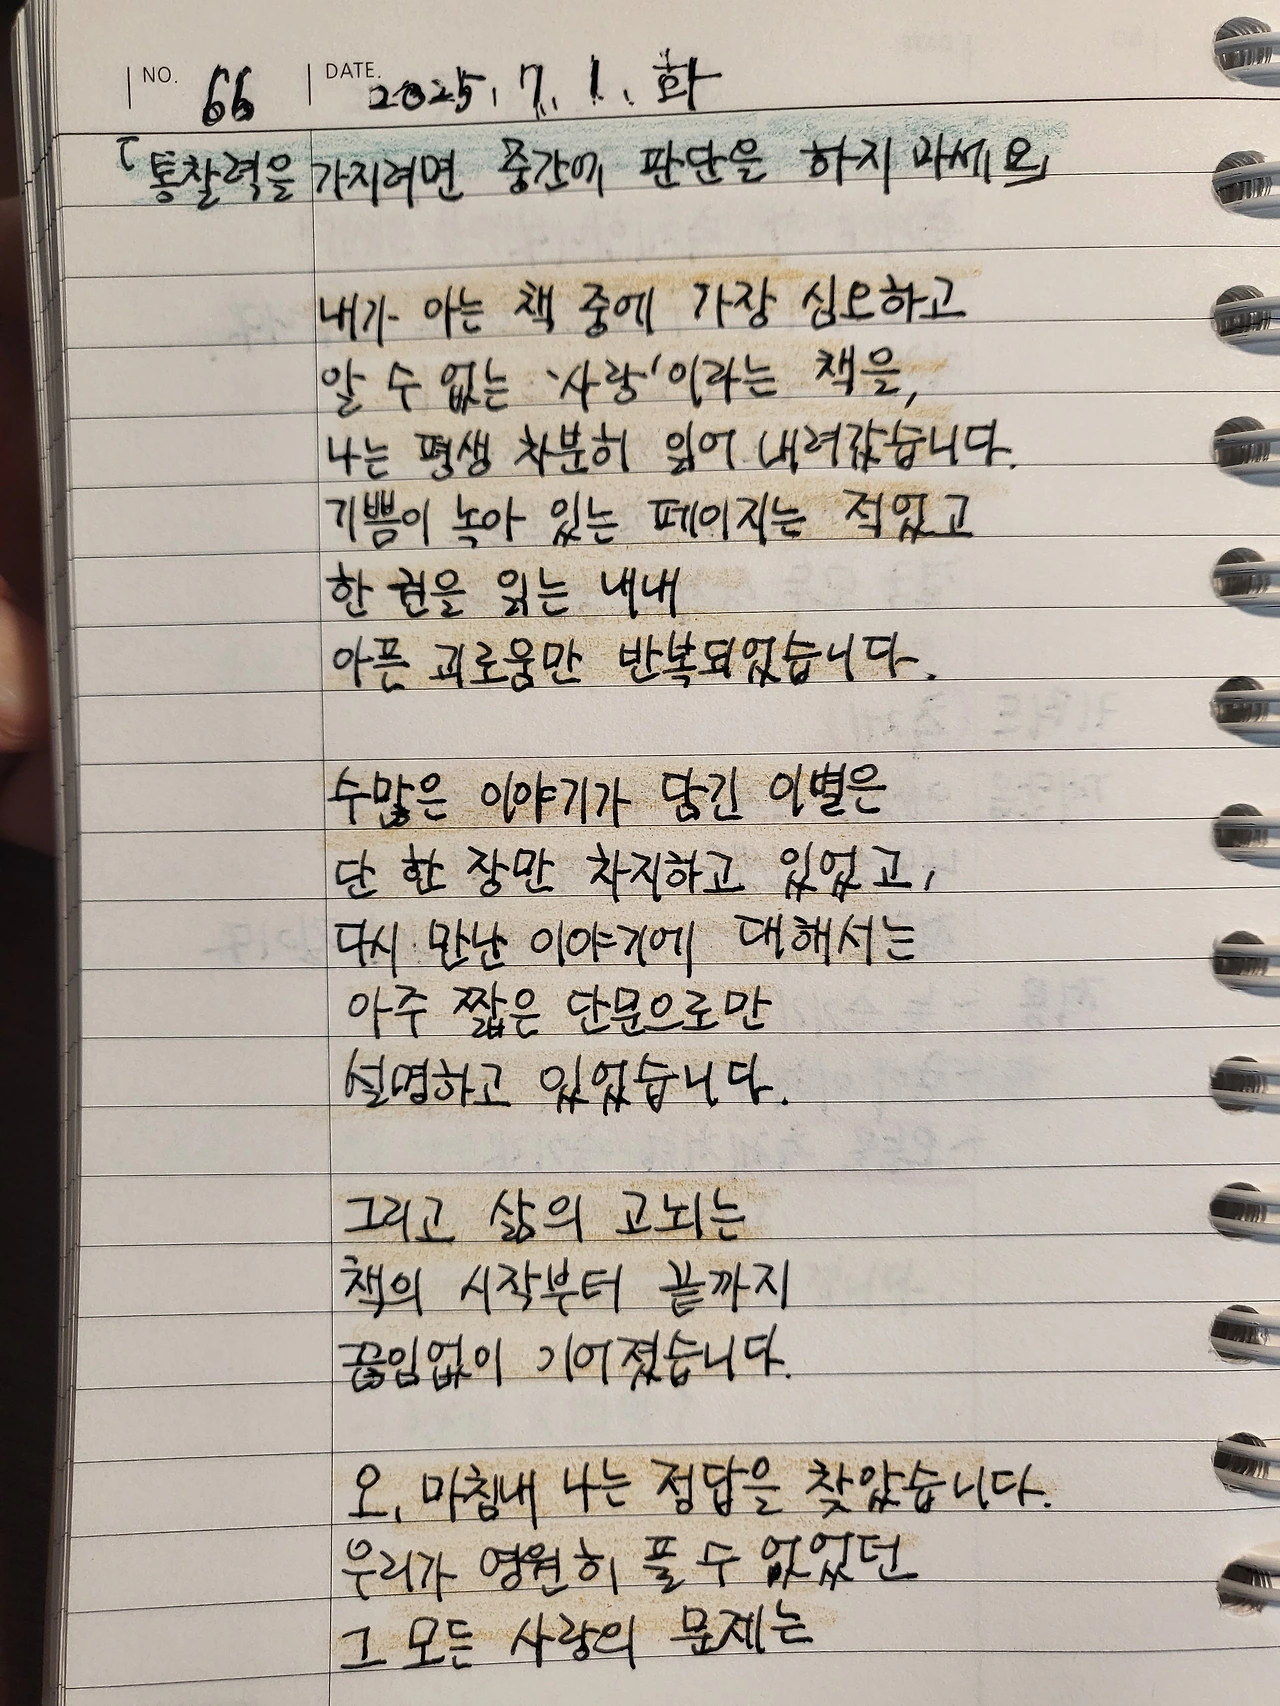 NO. 66 DATE. 2025. 7. 1. 화
「통찰력을 가지려면 중간에 판단을 하지 마세요」
내가 아는 책 중에 가장 심오하고
알 수 없는 '사랑'이라는 책을,
나는 평생 차분히 읽어 내려갔습니다.
기쁨이 녹아 있는 페이지는 적었고
한 권을 읽는 내내
아픈 괴로움만 반복되었습니다.
수많은 이야기가 담긴 이별은
단 한 장만 차지하고 있었고,
다시 만난 이야기에 대해서는
아주 짧은 단문으로만
설명하고 있었습니다.
그리고 삶의 고뇌는
책의 시작부터 끝까지
끊임없이 길어졌습니다.
오, 마침내 나는 정답을 찾았습니다.
우리가 영원히 풀 수 없었던
그 모든 사랑의 문제는